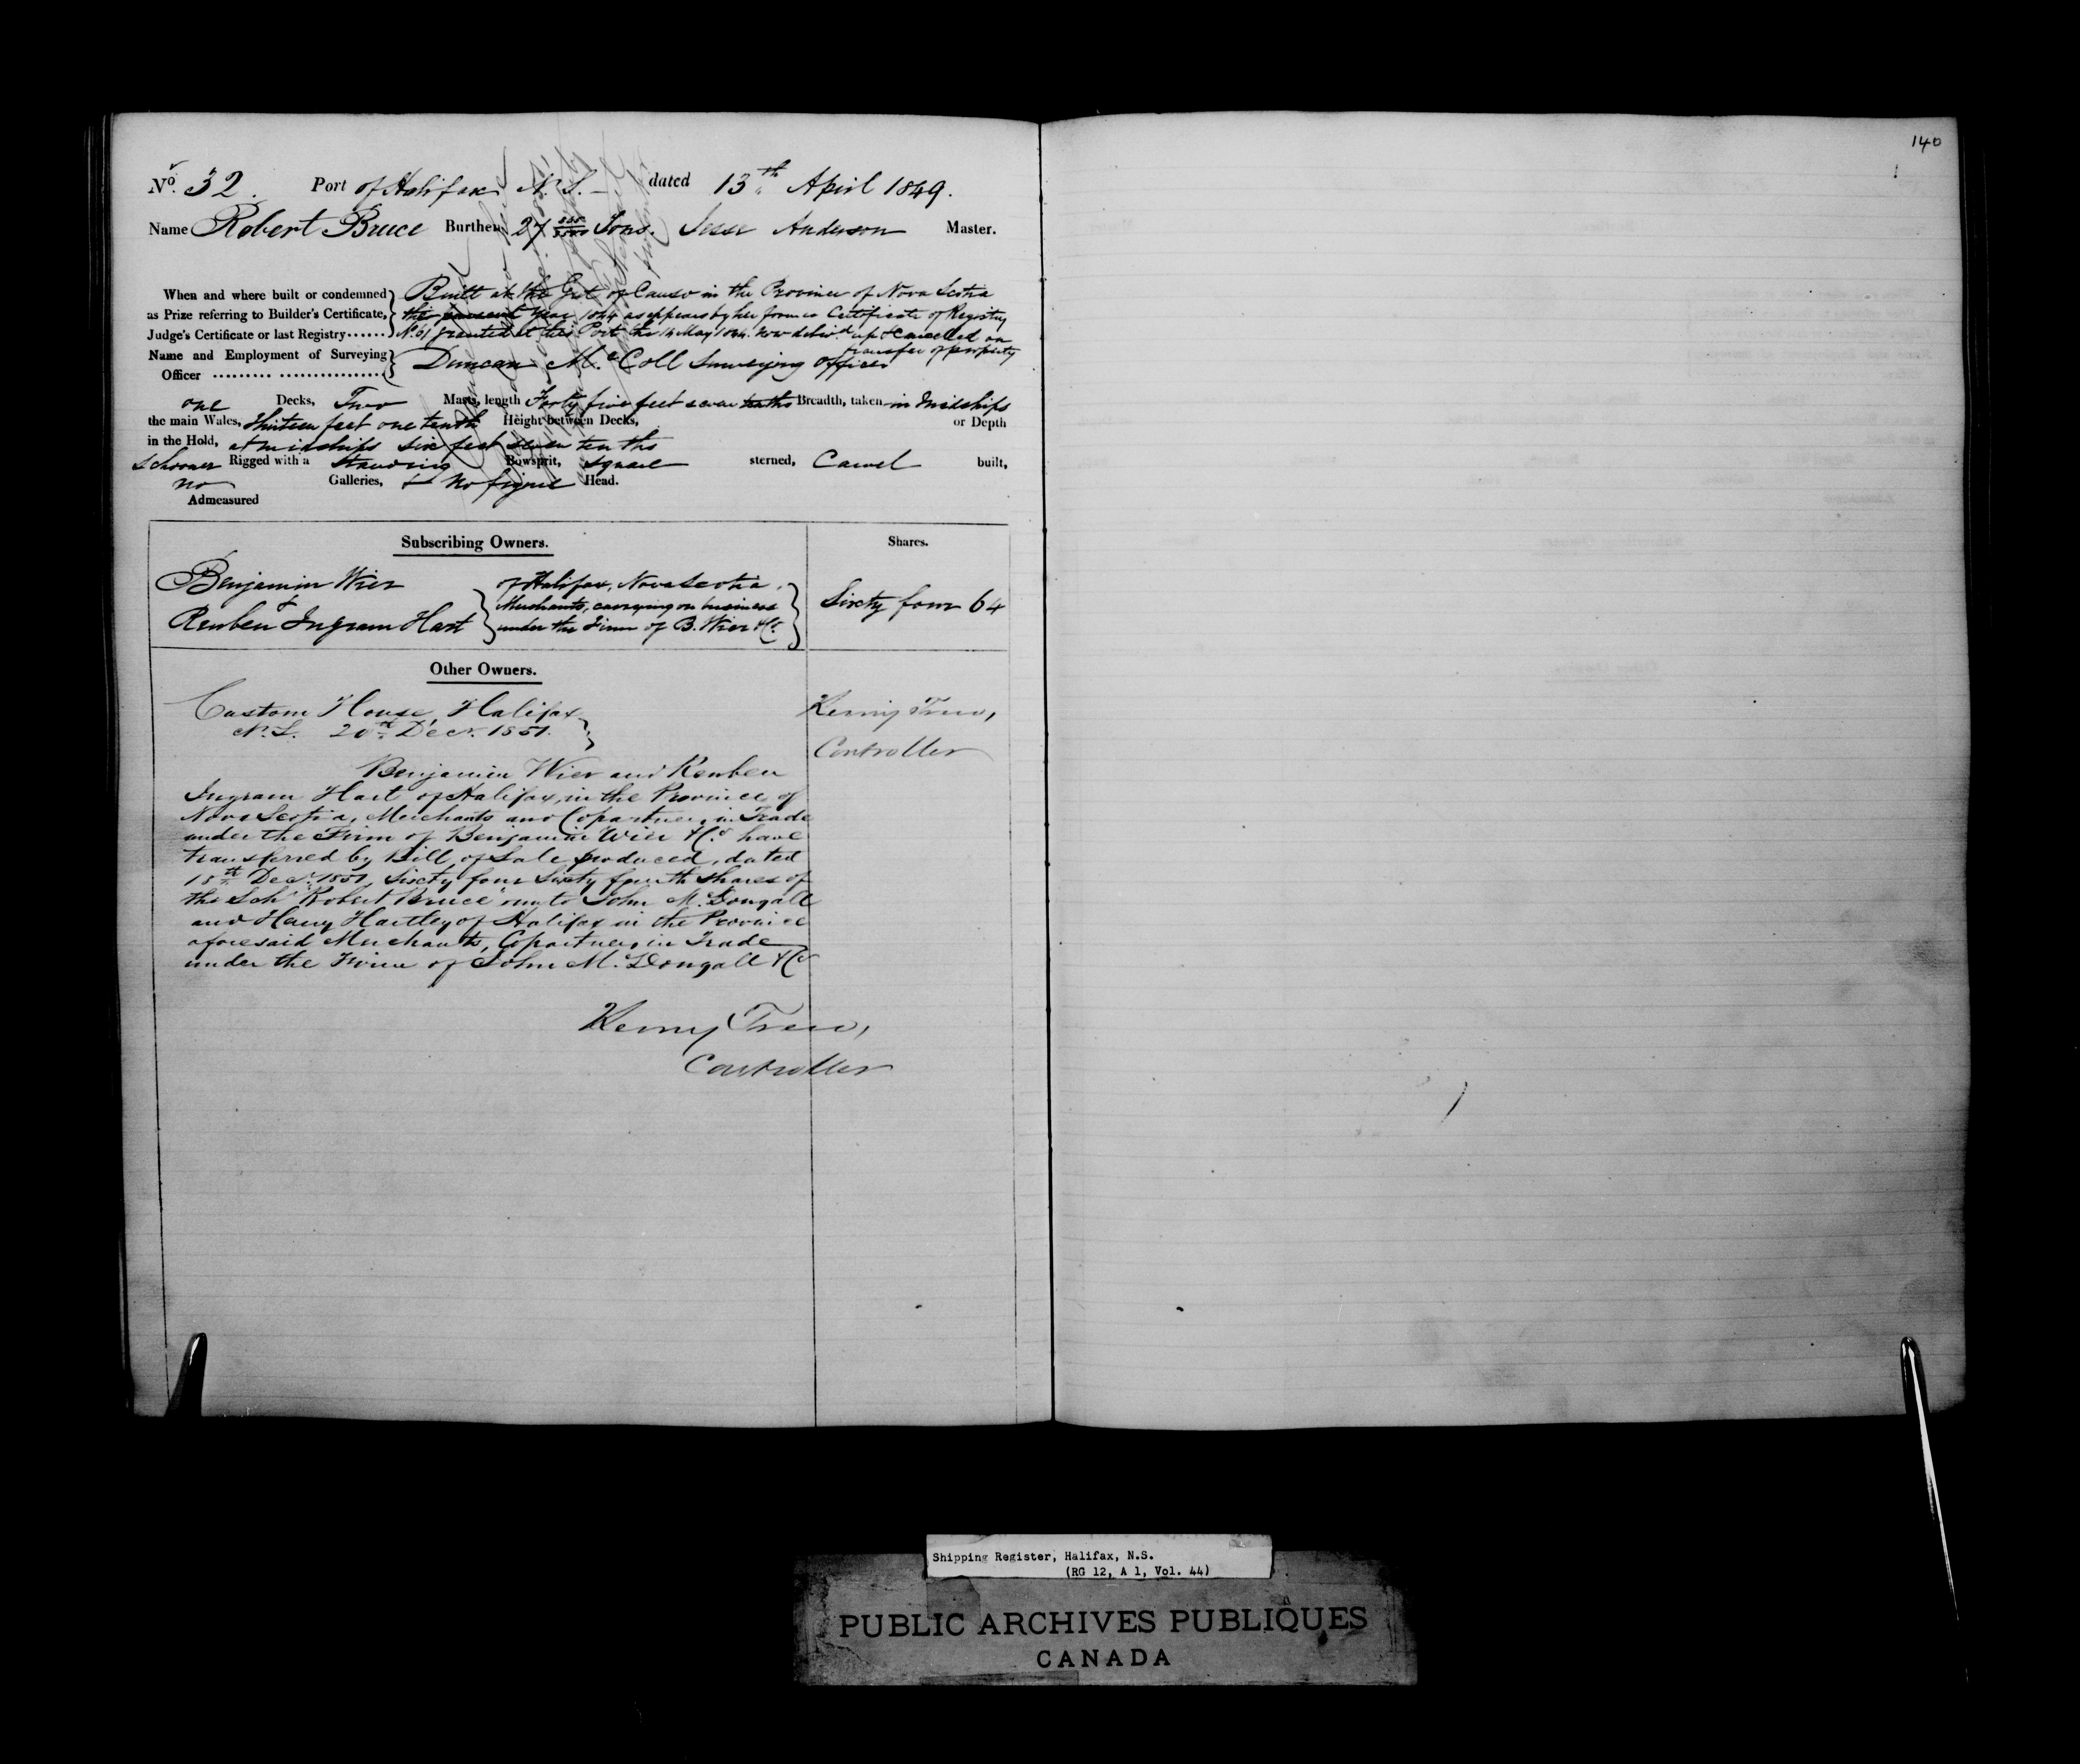 140
No. 32. Port of Halifax N.S. dated 13th April 1849.
Name Robert Bruce Burthen 27 Tons. Jesse Anderson Master.
When and where built or condemned Built at the Gut of Canso in the Province of Nova Scotia
as Prize referring to Builder's Certificate, the present year 1844 as appears by her former Certificate of Registry
Judge's Certificate or last Registry...... No. 61 granted at this Port the 14 May 1844. Now deliv'd up & Cancelled on
transfer of property
Name and Employment of Surveying Duncan Mc.Coll Surveying officer
Officer ......... ................
one Decks, Two Masts, length Forty five feet seven tenths Breadth, taken in Midships
the main Wales, Thirteen feet one tenth Height between Decks, or Depth
in the Hold, at midships six feet seven tenths
Schooner Rigged with a Standing Bowsprit, Square sterned, Carvel built,
no Galleries, & No figure Head.
Admeasured
Subscribing Owners. Shares.
Benjamin Wier
&
Reuben Ingram Hart
of Halifax, Nova Scotia.
Merchants, carrying on business
under the Firm of B. Wier & Co.
Sixty four 64
Other Owners.
Custom House, Halifax
N.S. 20th Decr. 1851.
Controller
Benjamin Wier and Reuben
Ingram Hart of Halifax, in the Province of
Nova Scotia, Merchants and Copartners in Trade
under the Firm of Benjamin Wier & Co. have
transferred by Bill of Sale produced, dated
18th Decr. 1851, Sixty four Sixty fourth shares of
the Schr "Robert Bruce" unto John McDougall
and Harry Hartley of Halifax in the Province
aforesaid Merchants, Copartners in Trade
under the Firm of John McDougall & Co
Controller
Shipping Register, Halifax, N.S.
(RG 12, A 1, Vol. 44)
PUBLIC ARCHIVES PUBLIQUES
CANADA